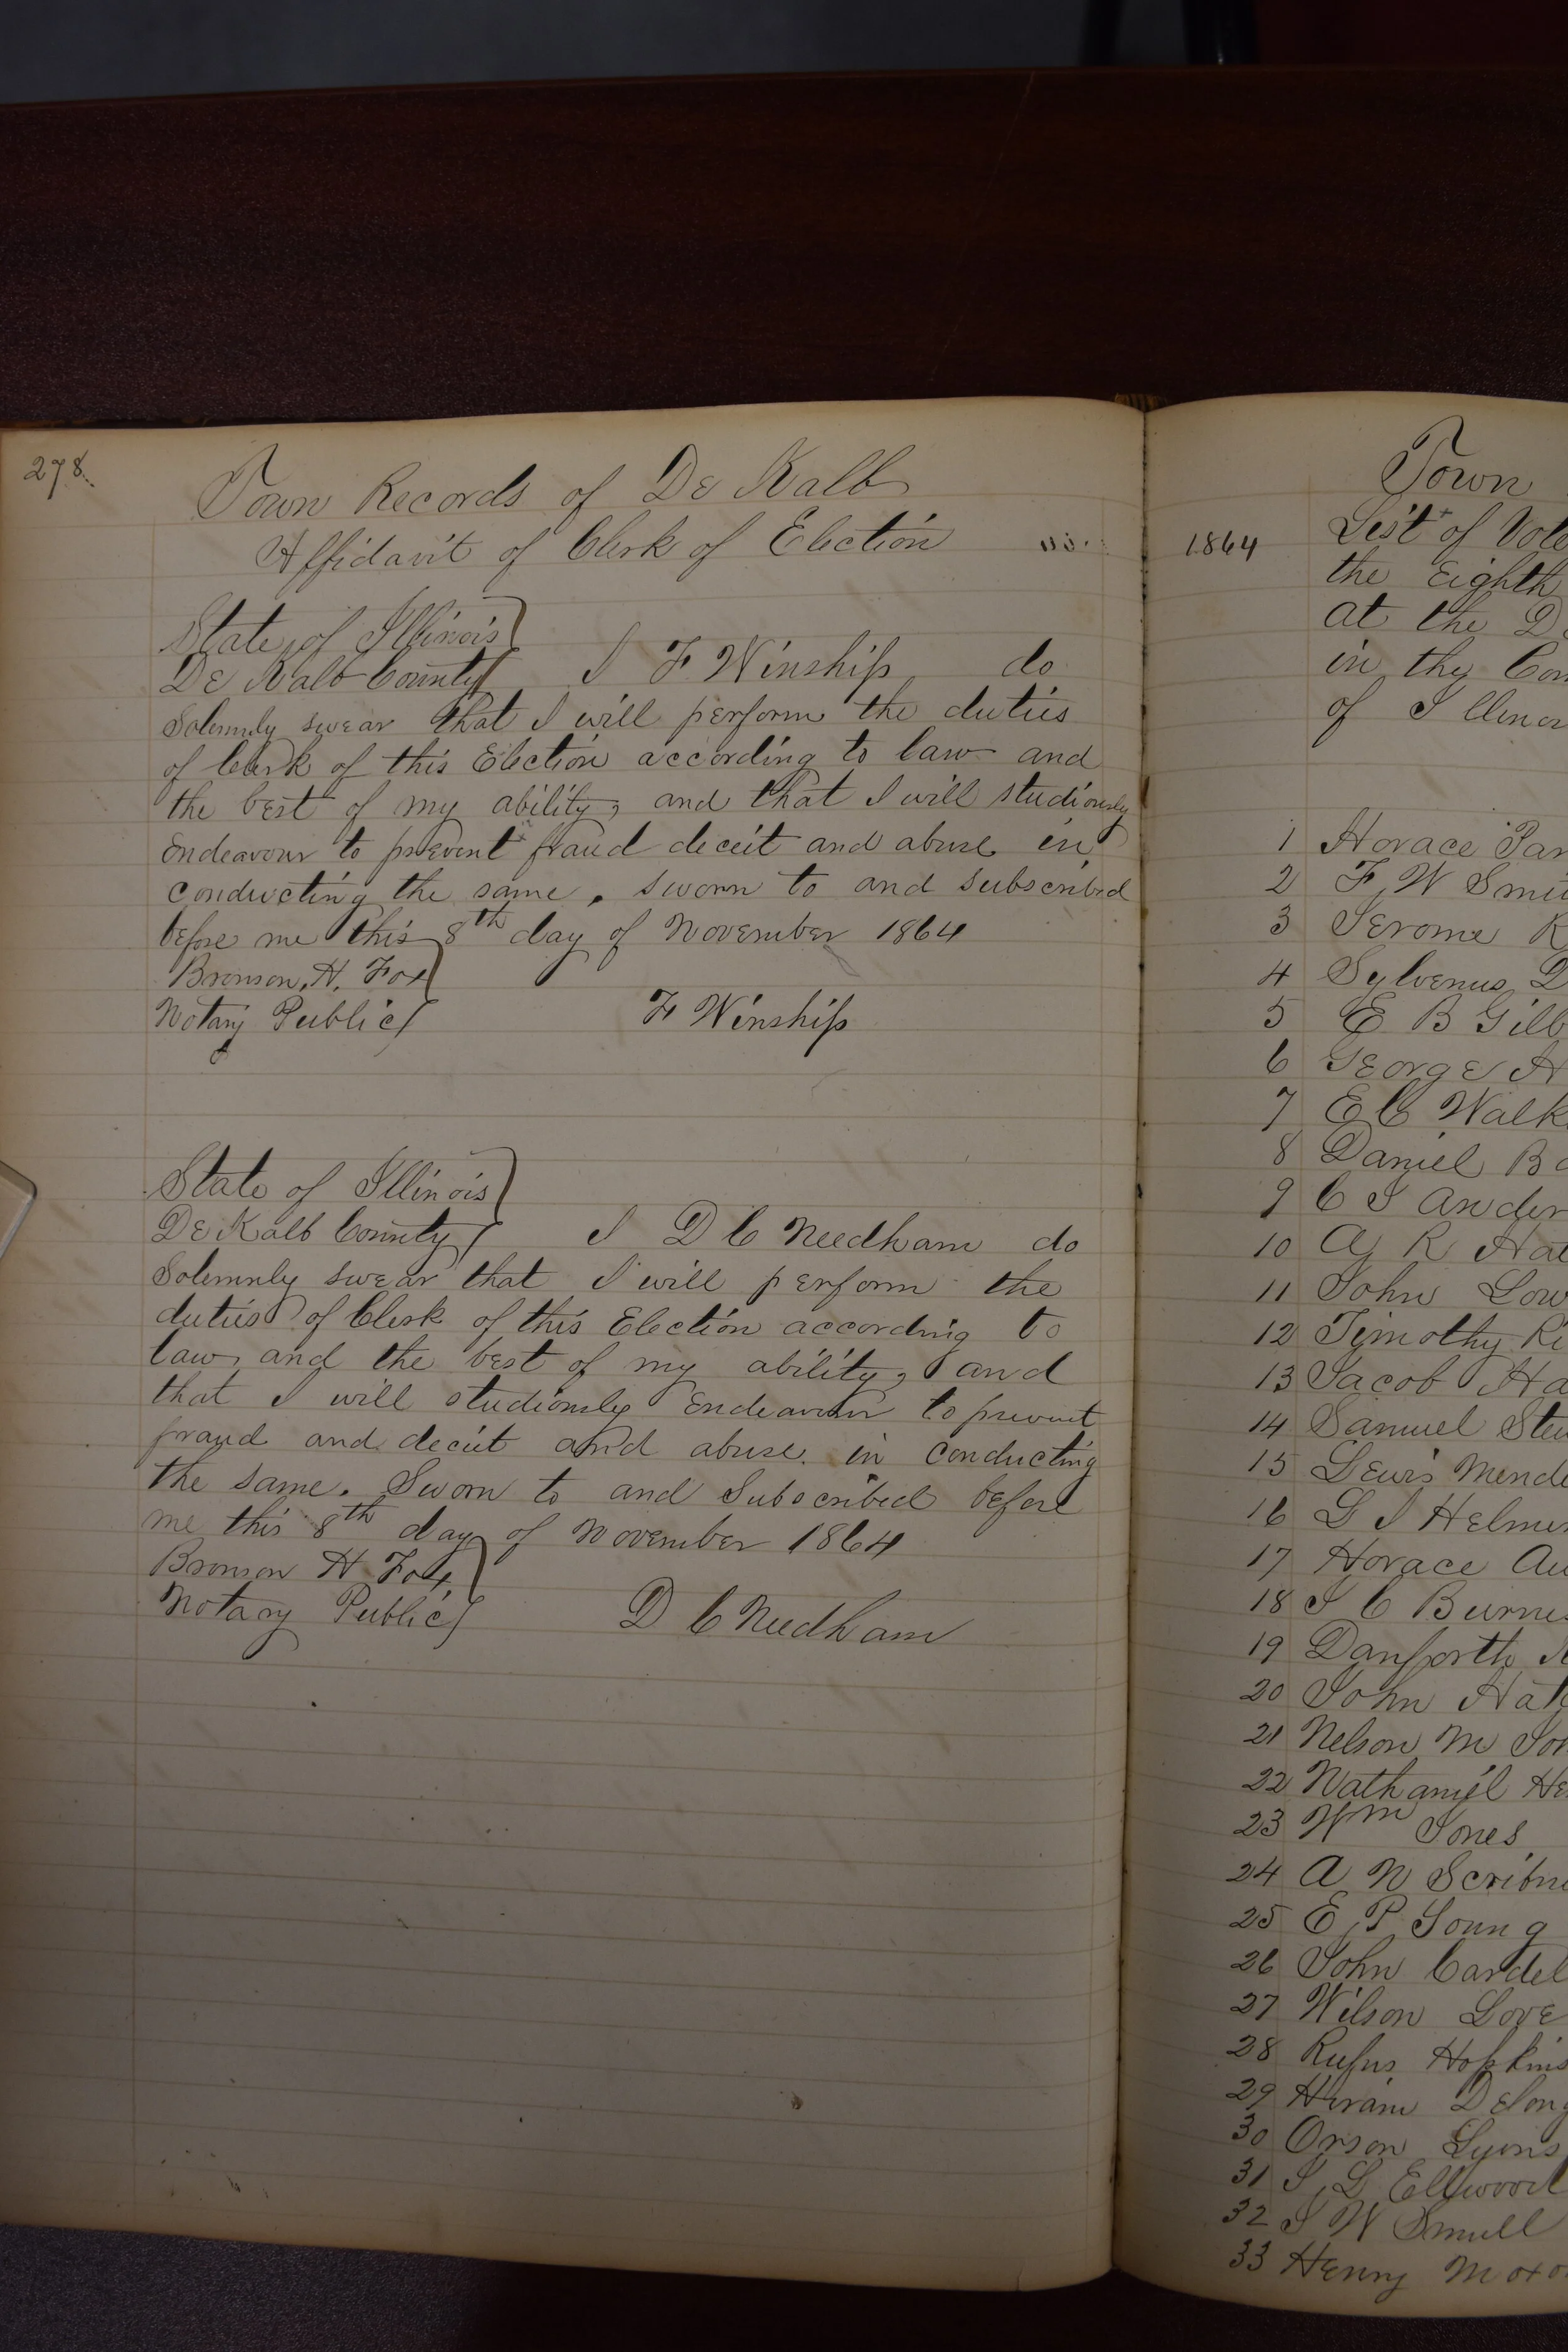 278.
Town Records of De Kalb
Affidavit of Clerk of Election
State of Illinois
De Kalb County I F Winship do
Solemnly swear that I will perform the duties
of Clerk of this Election according to law and
the best of my ability, and that I will studiously
endeavour to prevent fraud deceit and abuse in
conducting the same. Sworn to and subscribed
before me this 8th day of November 1864
Bronson, H. Fox
Notary Public F Winship
State of Illinois
De Kalb County I D C Needham do
Solemnly swear that I will perform the
duties of Clerk of this Election according to
law, and the best of my ability, and
that I will studiously Endeavour to prevent
fraud and deceit and abuse. in conducting
the same. Sworn to and Subscribed before
me this 8th day of November 1864
Bronson H Fox,
Notary Public D C Needham
Town
1864 List of Vote
the Eighth
at the D
in the Con
of Illinoi
1 Horace Par
2 F, W Smi
3 Jerome R
4 Sylvenus D
5 E B Gilb
6 George H
7 E C Walk
8 Daniel B
9 C I Ander
10 R Hat
11 John Low
12 Timothy Ri
13 Jacob Ha
14 Samuel Stew
15 Lewis Mende
16 L I Helm
17 Horace Au
18 I C Burn
19 Danforth
20 John Hat
21 Nelson M Jo
22 Nathaniel He
23 Wm Jones
24 A N Scribne
25 E, P, Young
26 John Cardel
27 Wilson Love
28 Rufus Hopkins
29 Hiram Delong
30 Orson Lyons
31 I, L Ellwood
32 I W Smull
33 Henry Moxo